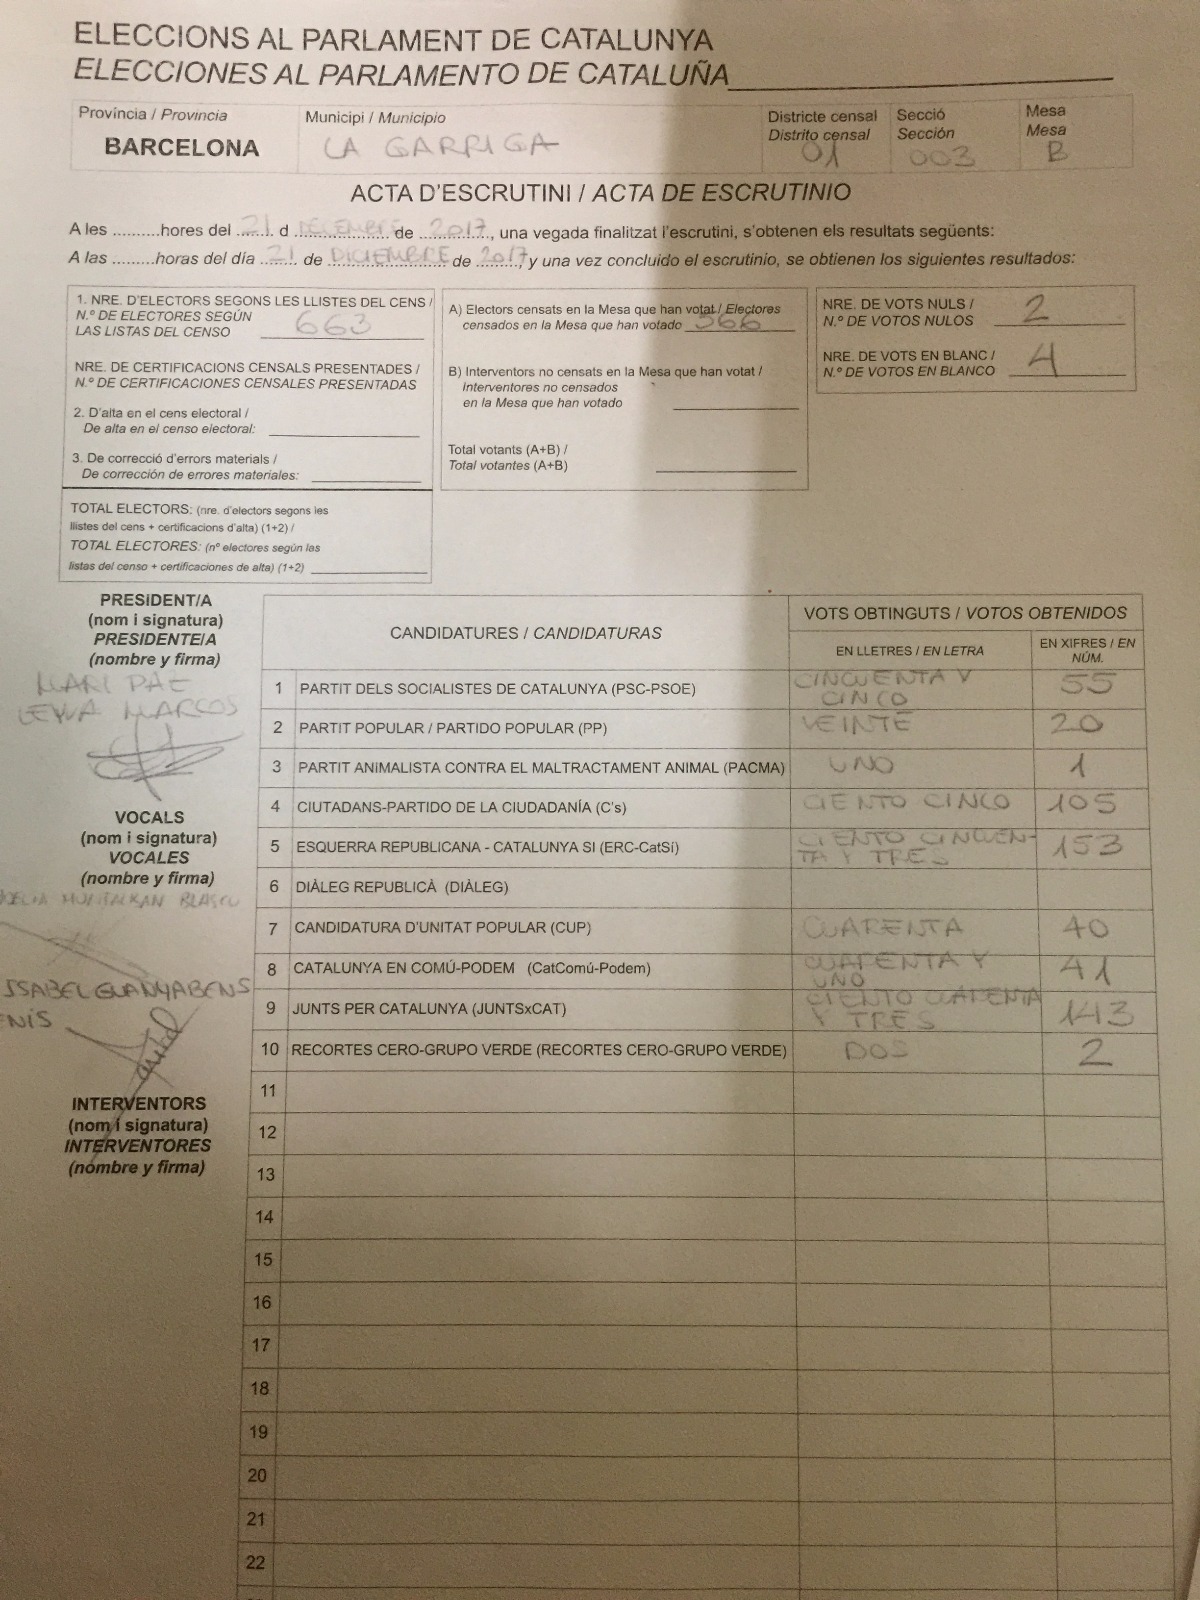 ELECCIONS AL PARLAMENT DE CATALUNYA
ELECCIONES AL PARLAMENTO DE CATALUÑA
Província / Provincia
BARCELONA
Municipi / Municipio
LA GARRIGA
Districte censal
Distrito censal
01
Secció
Sección
003
Mesa
Mesa
B
ACTA D'ESCRUTINI / ACTA DE ESCRUTINIO
A les .........hores del 21 d DECEMBRE de 2017, una vegada finalitzat l'escrutini, s'obtenen els resultats següents:
A las .........horas del día 21 de DICIEMBRE de 2017 y una vez concluido el escrutinio, se obtienen los siguientes resultados:
1. NRE. D'ELECTORS SEGONS LES LLISTES DEL CENS /
N.º DE ELECTORES SEGÚN
LAS LISTAS DEL CENSO 663
NRE. DE CERTIFICACIONS CENSALS PRESENTADES /
N.º DE CERTIFICACIONES CENSALES PRESENTADAS
2. D'alta en el cens electoral /
De alta en el censo electoral:
3. De correcció d'errors materials /
De corrección de errores materiales:
TOTAL ELECTORS: (nre. d'electors segons les
llistes del cens + certificacions d'alta) (1+2) /
TOTAL ELECTORES: (nº electores según las
listas del censo + certificaciones de alta) (1+2)
A) Electors censats en la Mesa que han votat / Electores
censados en la Mesa que han votado 566
B) Interventors no censats en la Mesa que han votat /
Interventores no censados
en la Mesa que han votado
Total votants (A+B) /
Total votantes (A+B)
NRE. DE VOTS NULS /
N.º DE VOTOS NULOS 2
NRE. DE VOTS EN BLANC /
N.º DE VOTOS EN BLANCO 4
PRESIDENT/A
(nom i signatura)
PRESIDENTE/A
(nombre y firma)
MARI PAZ
LEYVA MARCOS
VOCALS
(nom i signatura)
VOCALES
(nombre y firma)
BLASCO
ISABEL GUANYABENS
INTERVENTORS
(nom i signatura)
INTERVENTORES
(nombre y firma)
CANDIDATURES / CANDIDATURAS
VOTS OBTINGUTS / VOTOS OBTENIDOS
EN LLETRES / EN LETRA
EN XIFRES / EN
NÚM.
1 PARTIT DELS SOCIALISTES DE CATALUNYA (PSC-PSOE) CINCUENTA Y
CINCO 55
2 PARTIT POPULAR / PARTIDO POPULAR (PP) VEINTE 20
3 PARTIT ANIMALISTA CONTRA EL MALTRACTAMENT ANIMAL (PACMA) UNO 1
4 CIUTADANS-PARTIDO DE LA CIUDADANÍA (C's) CIENTO CINCO 105
5 ESQUERRA REPUBLICANA - CATALUNYA SI (ERC-CatSí) CIENTO CINCUEN-
TA Y TRES 153
6 DIÀLEG REPUBLICÀ (DIÀLEG)
7 CANDIDATURA D'UNITAT POPULAR (CUP) CUARENTA 40
8 CATALUNYA EN COMÚ-PODEM (CatComú-Podem) CUARENTA Y
UNO 41
9 JUNTS PER CATALUNYA (JUNTSxCAT) CIENTO CUARENTA
Y TRES 143
10 RECORTES CERO-GRUPO VERDE (RECORTES CERO-GRUPO VERDE) DOS 2
11
12
13
14
15
16
17
18
19
20
21
22